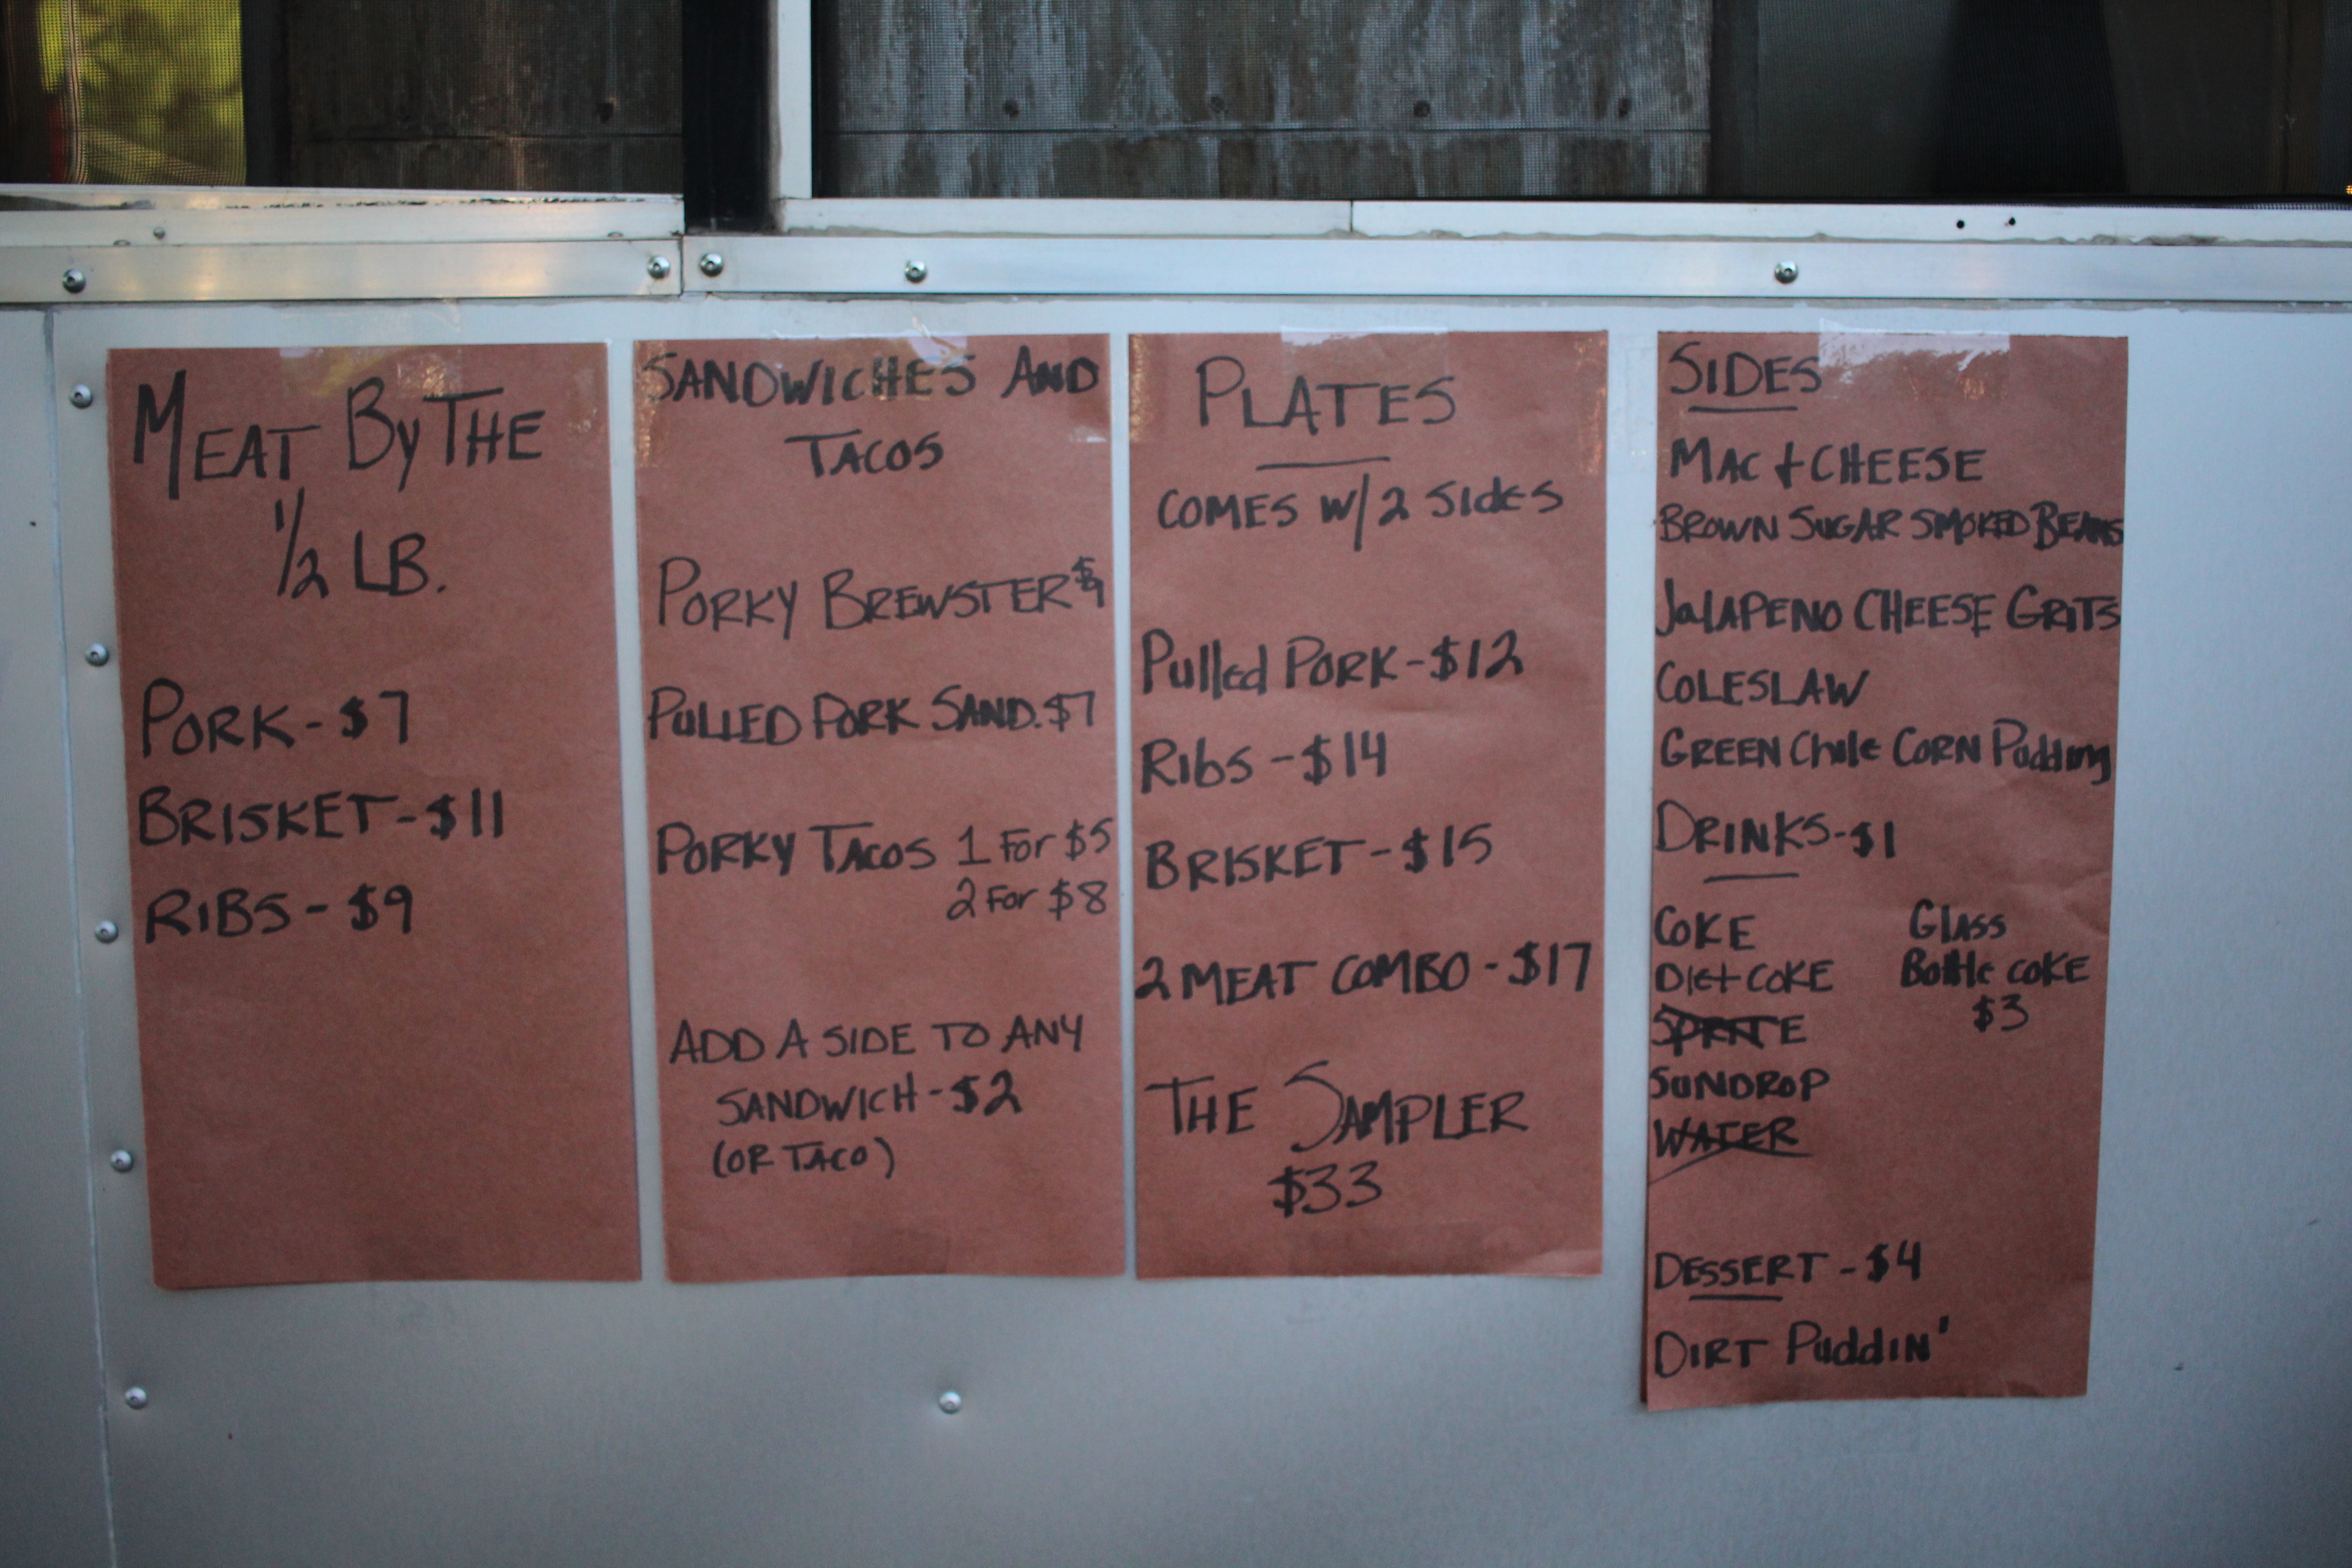 MEAT By THE
1/2 LB.
PORK - $7
BRISKET - $11
RIBS - $9
SANDWICHES AND
TACOS
PORKY BREWSTER $9
PULLED PORK SAND. $7
PORKY TACOS 1 For $5
2 For $8
ADD A SIDE TO ANY
SANDWICH - $2
(OR TACO)
PLATES
COMES W/ 2 SIdES
Pulled PORK - $12
Ribs - $14
BRISKET - $15
2 MEAT COMBO - $17
THE SAMPLER
$33
SIDES
MAC + CHEESE
BROWN SUGAR SMOKED BEANS
JalAPENO CHEESE GRITS
COLESLAW
GREEN Chile CORN Pudding
DRINKS - $1
COKE
DIET COKE
SPRITE
SUNDROP
WATER
GLASS
Bottle COKE
$3
DESSERT - $4
DIRT PuddIN'